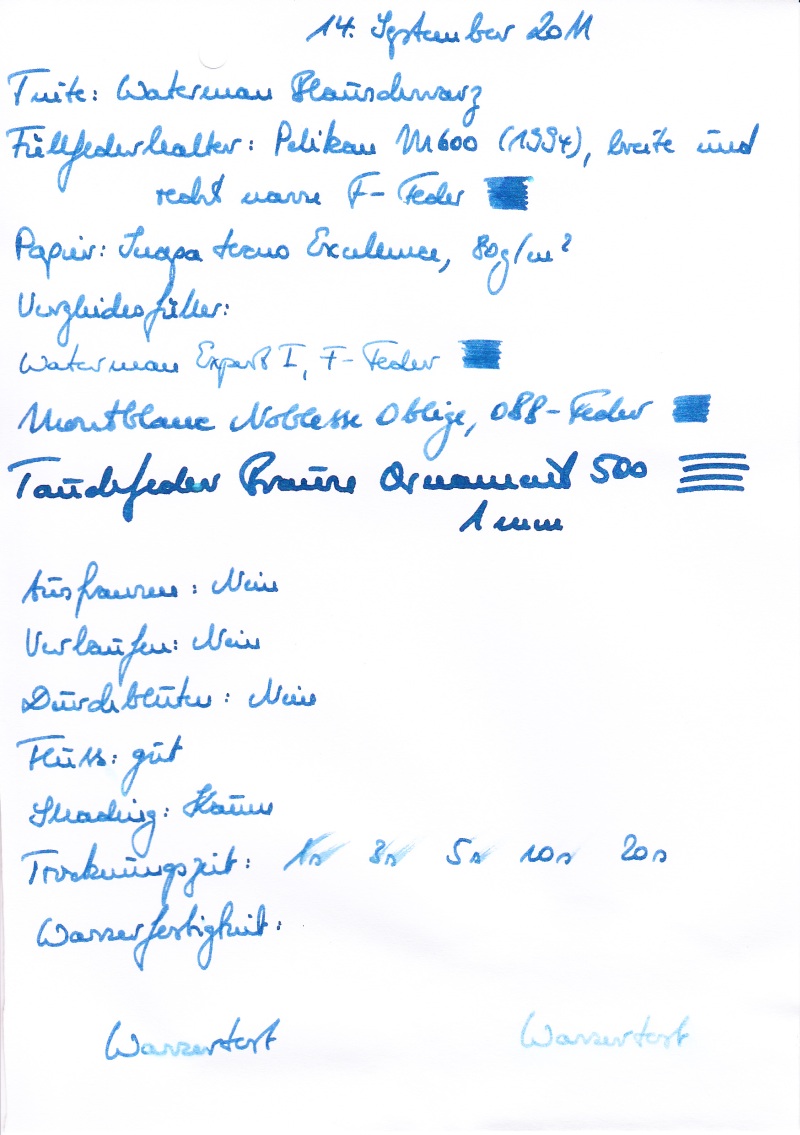 14. September 2011
Tinte: Waterman Blauschwarz
Füllfederhalter: Pelikan M600 (1994), breite und
recht nasse F-Feder
Papier: Inapa tecno Excellence, 80g/m²
Vergleichsfüller:
Waterman Expert I, F-Feder
Montblanc Noblesse Oblige, 088-Feder
Tauchfeder Brause Ornament 500
1 mm
Ausfransen: Nein
Verlaufen: Nein
Durchbluten: Nein
Fluss: gut
Shading: Kaum
Trocknungszeit: 1s 3s 5s 10s 20s
Wasserfestigkeit:
Wassertest Wassertest